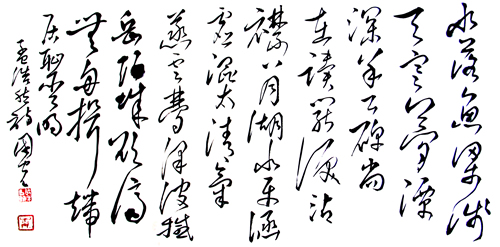 水落魚梁淺
天寒夢澤
深羊公碑尚
在讀罷淚沾
襟八月湖水平涵
虛混太清氣
蒸雲夢澤波撼
岳陽城欲濟
無舟楫端
居恥聖明
孟浩然詩